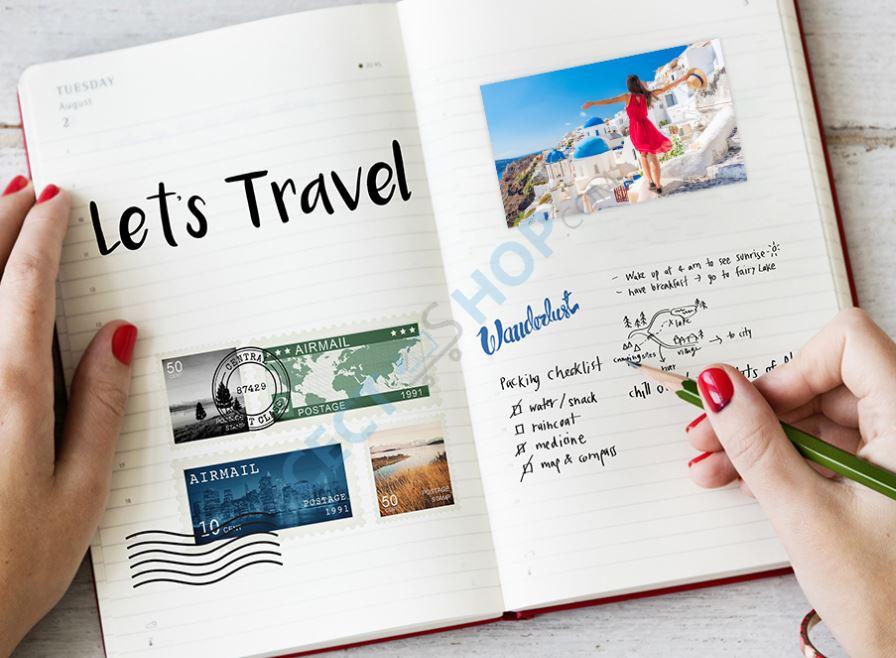 TUESDAY
August
2
Let's Travel
50
CENTRAL
87429
AIRMAIL
POSTAGE
1991
AIRMAIL
POSTAGE
1991
10 CENT
50
POSTAGE
STAMP
Wanderlust
- Wake up at 4 am to see sunrise
- have breakfast → go to Fairy Lake
lake
camping sites
village
→ to city
river
Packing checklist
water/snack
raincoat
medicine
map & compass
chill o
SHOP